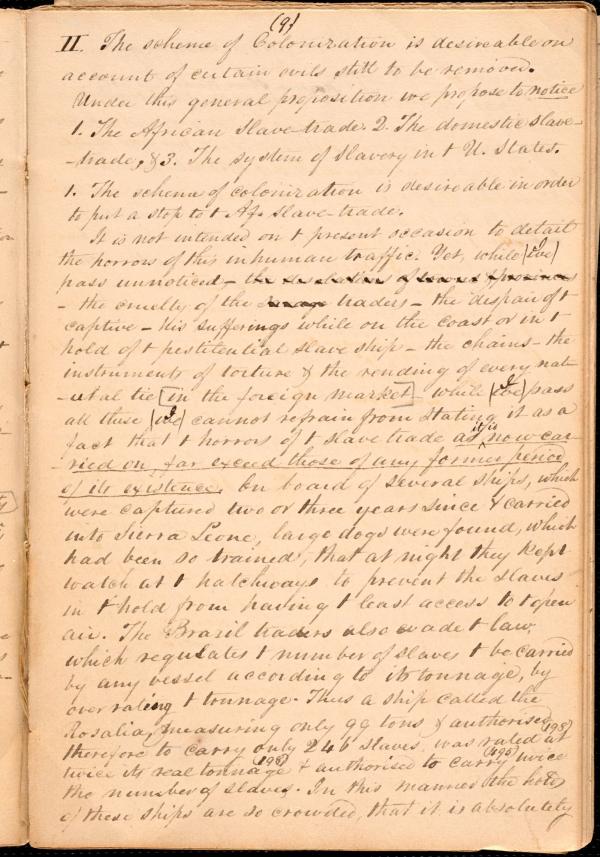 (9)
II. The scheme of Colonization is desireable on
account of certain evils still to be removed.
Under this general proposition we propose to notice
1. The African Slave-trade. 2. The domestic slave-
-trade, & 3. The system of slavery in t U. States.
1. The scheme of colonization is desireable in order
to put a stop to t Af. Slave-trade.
It is not intended on t present occasion to detail
the horrors of this inhuman traffic. Yet, while I (we)
pass unnoticed - the desolations of
- the cruelty of the savage traders - the despair of t
captive - His sufferings while on the coast or in t
hold of t pestilential slave ship - the chains - the
instruments of torture & the rending of every nat-
-ural tie [in the foreign market] - while I (we) pass
all these I (we) cannot refrain from stating it as a
fact that t horrors of t slave trade as it is now car-
-ried on, far exceed those of any former period
of its existence. On board of several ships, which
were captured two or three years since & carried
into Sierra Leone, large dogs were found, which
had been so trained, that at night they kept
watch at t hatchways to prevent the slaves
in t hold from having t least access to t open
air. The Brazil traders also evade t law,
which regulates t number of slaves t be carried
by any vessel according to its tonnage, by
over rating t tonnage. Thus a ship called the
Rosalia, measuring only 99 tons & authorised
therefore to carry only 246 slaves, was rated at (198)
twice its real tonnage (198) & authorised to carry (493) twice
the number of slaves. In this manner the holds
of these ships are so crowded, that it is absolutely